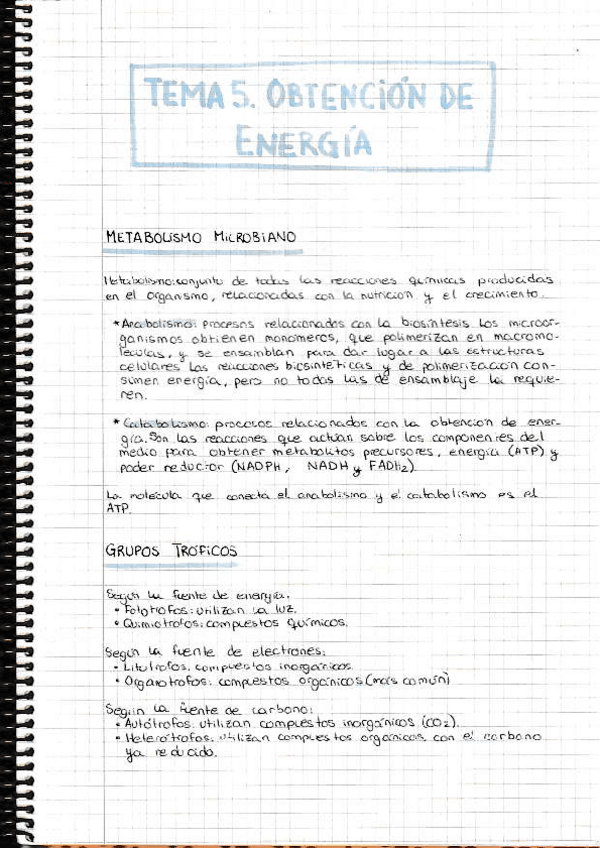 TEMA 5. OBTENCIÓN DE
ENERGÍA
METABOLISMO MICROBIANO
Metabolismo: conjunto de todas las reacciones químicas producidas
en el organismo, relacionadas con la nutrición y el crecimiento.
* Anabolismo: procesos relacionados con la biosíntesis. Los microor-
ganismos obtienen monómeros, que polimerizan en macromo-
léculas, y se ensamblan para dar lugar a las estructuras
celulares. Las reacciones biosintéticas y de polimerización con-
sumen energía, pero no todas las de ensamblaje la requie-
ren.
* Catabolismo: procesos relacionados con la obtención de ener-
gía. Son las reacciones que actúan sobre los componentes del
medio para obtener metabolitos precursores, energía (ATP) y
poder reductor (NADPH, NADH y FADH2)
La molécula que conecta el anabolismo y el catabolismo es el
ATP.
GRUPOS TRÓFICOS
Según la fuente de energía:
• Fototrofos: utilizan la luz.
• Quimiotrofos: compuestos químicos.
Según la fuente de electrones:
• Litótrofos: compuestos inorgánicos.
• Organotrofos: compuestos orgánicos (más común)
Según la fuente de carbono:
• Autótrofos: utilizan compuestos inorgánicos (CO2).
• Heterótrofos: utilizan compuestos orgánicos con el carbono
ya reducido.